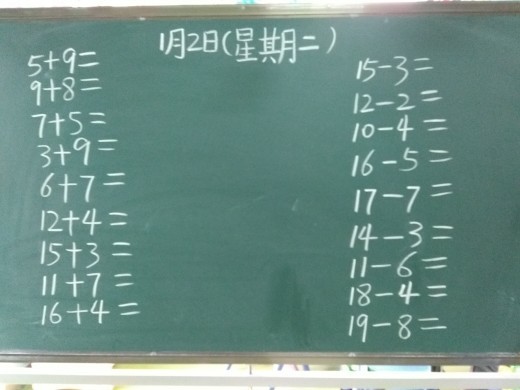 1月2日(星期二)
5+9=
9+8=
7+5=
3+9=
6+7=
12+4=
15+3=
11+7=
16+4=
15-3=
12-2=
10-4=
16-5=
17-7=
14-3=
11-6=
18-4=
19-8=